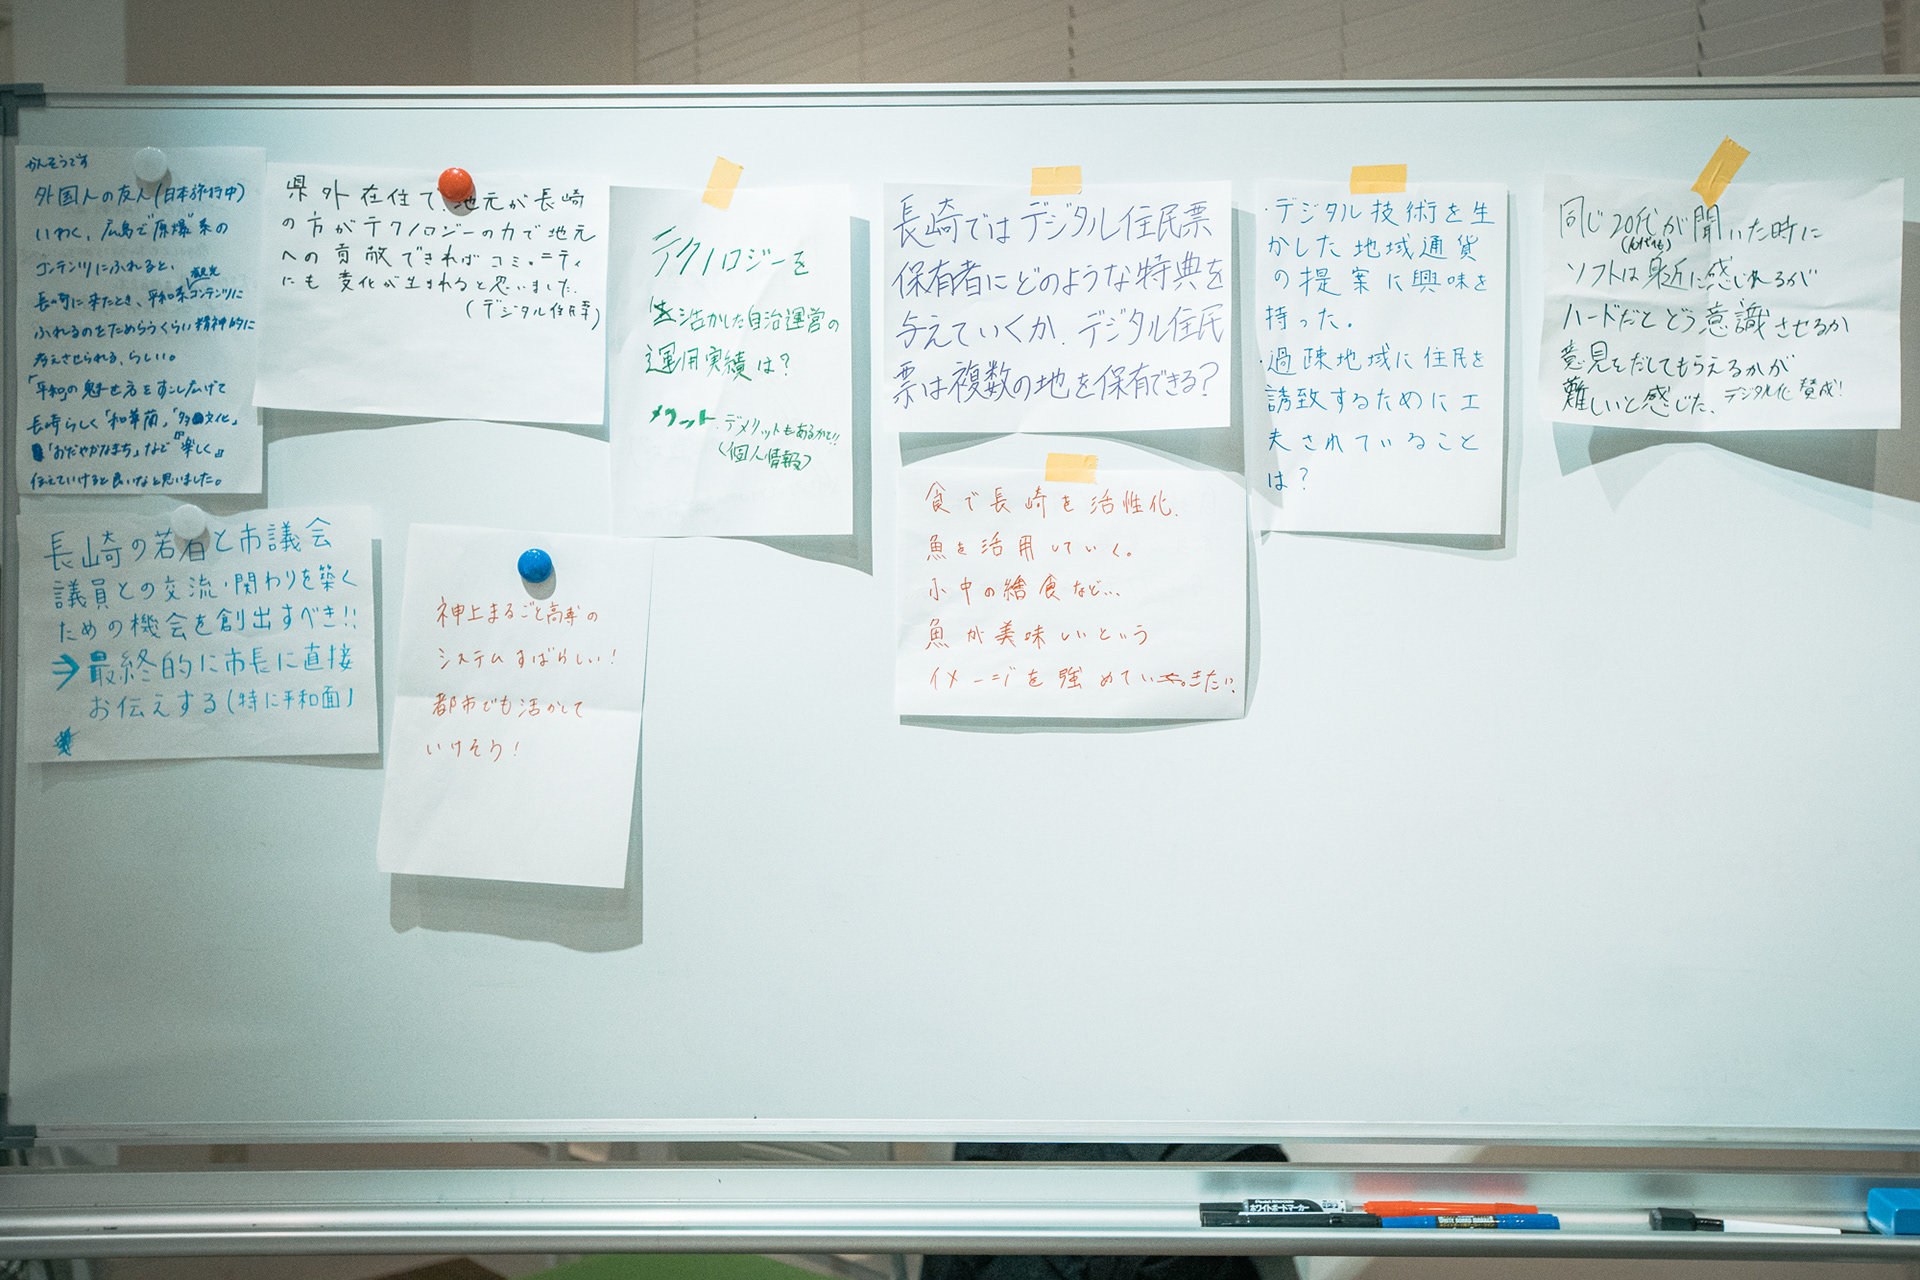 かんそうです
外国人の友人(日本旅行中)
いわく、広島で"原爆"系の
コンテンツにふれると、
観光
長崎に来たとき、平和系コンテンツに
ふれるのをためらうくらい精神的に
考えさせられる、らしい。
「平和の魅せ方をすこし広げて
長崎らしく「和華蘭」,「多文化」,
「おだやかなまち」など『楽しく』
伝えていけると良いなと思いました。
県外在住で、地元が長崎
の方がテクノロジーの力で地元
への貢献できればコミュニティ
にも変化が生まれると思いました.
(デジタル住民票)
テクノロジーを
生活かした自治運営の
運用実績は?
メリット
デメリットもあるかと!!
(個人情報)
長崎ではデジタル住民票
保有者にどのような特典を
与えていくか.デジタル住民
票は複数の地を保有できる?
・デジタル技術を生
かした地域通貨
の提案に興味を
持った。
・過疎地域に住民を
誘致するために工
夫されていること
は?
同じ20代が聞いた時に
ソフトは身近に感じれるが
ハードだとどう意識させるか
意見をだしてもらえるかが
難しいと感じた、デジタル化賛成!
長崎の若者と市議会
議員との交流・関わりを築く
ための機会を創出すべき!!
→最終的に市長に直接
お伝えする(特に平和面)
神上まるごと高専の
システムすばらしい!
都市でも活かして
いけそう!
食で長崎を活性化、
魚を活用していく。
小中の給食など…
魚が美味しいという
イメージを強めていきたい?
ホワイトボードマーカー